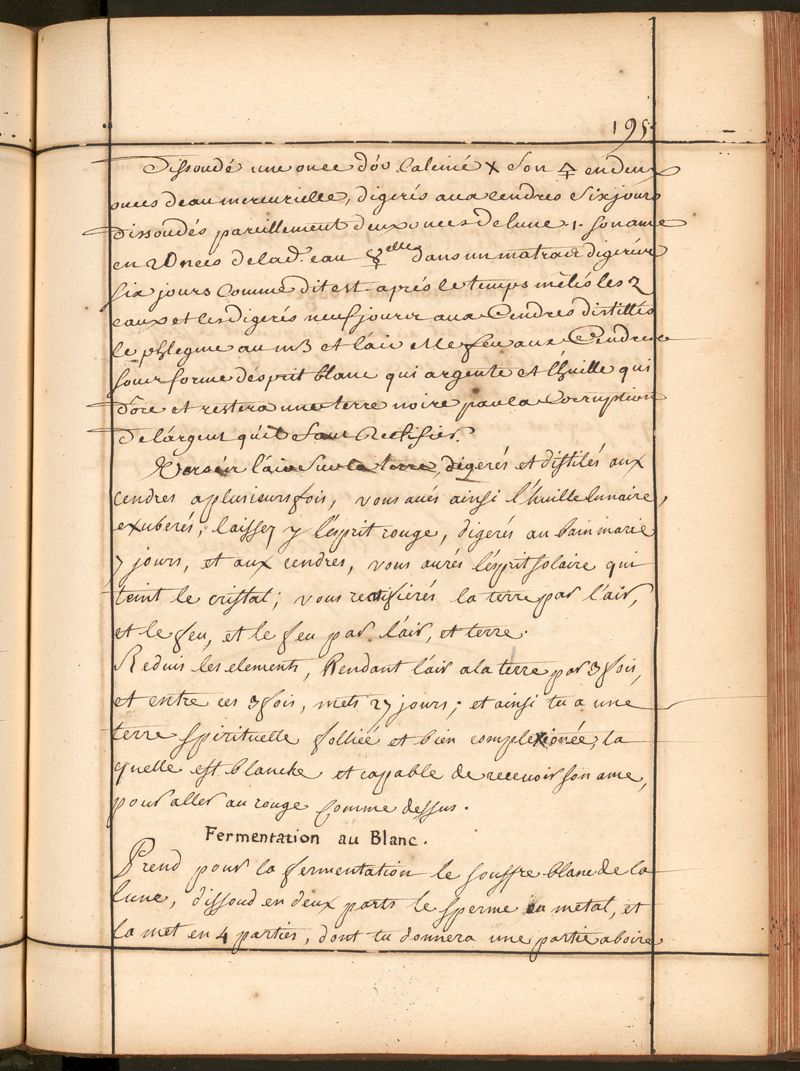 195.
Dissoudé une once d'or Calciné X Son 🜍 en deux
onces deau mercurielle, digerés aux Cendres Sixjours
Dissoudés pareillement deux onces de lune 1. son ame
en 2 Onces de lad.e eau ☿elle dans un matras digerér
six jours Comme dit est. aprés le temps mêlés les 2
eaux et les digerés neuf jours aux Cendres distillés
le phlegme au m3 et lair et le feu aux Cendres
sour forme desprit blanc qui argente et l'huille qui
dôre et restera une terre noire par la Corruption
De l'argent qu'il faut Rectifier.
Versér l'air Sur la terre, digerés et distilés aux
Cendres a plusieurs fois, vous aués ainsi l'huille lunaire,
exuberés, laissez y lesprit rouge, digerés au bain marie
7 jours, et aux cendres, vous aurés lesprit solaire qui
teint le cristal; vous rectifierés la terre par l'air,
et le feu, et le feu par l'air, et terre.
Reduis les elements, Rendant l'air a la terre par 3 fois,
et entre ces 3 fois, mets 27 jours; et ainsi tu a une
terre spirituelle folliée et bien complexionée, la
quelle est blanche et capable de recevoir son ame,
pour aller au rouge Comme dessus.
Fermentation au Blanc.
Prend pour la fermentation le souffre blanc de la
lune, dissoud en deux parts le sperme metal, et
la met en 4 parties, dont tu donnera une partie a boire